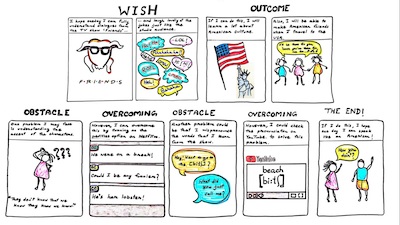 WISH
OUTCOME
I hope someday I can fully
understand dialogues from
the TV show "Friends"...
F·R·I·E·N·D·S
...and laugh loudly at the
jokes just like the
studio audience.
LOL!
If I can do this, I will
learn a lot about
American culture.
Also, I will be able to
make American friends
when I travel to the
U.S.
OBSTACLE
OVERCOMING
OBSTACLE
OVERCOMING
THE END!
One problem I may face
is understanding the
accent of the characters.
???
"They don't know that we
know they know we know!"
However, I can overcome
this by turning on the
captions option on Netflix.
We were on a break!
Could I be any funnier?
He's her lobster!
Another problem could
be that I mispronounce
the words that I learn
from the show.
Hey! Want to go to
the [bitʃ]?
What did
you just
call me?
However, I could check
the pronunciation on
YouTube to solve this
problem.
YouTube
beach
[biːtʃ]
If I do this, I hope
one day I can speak
like an American!
How you
doin'?